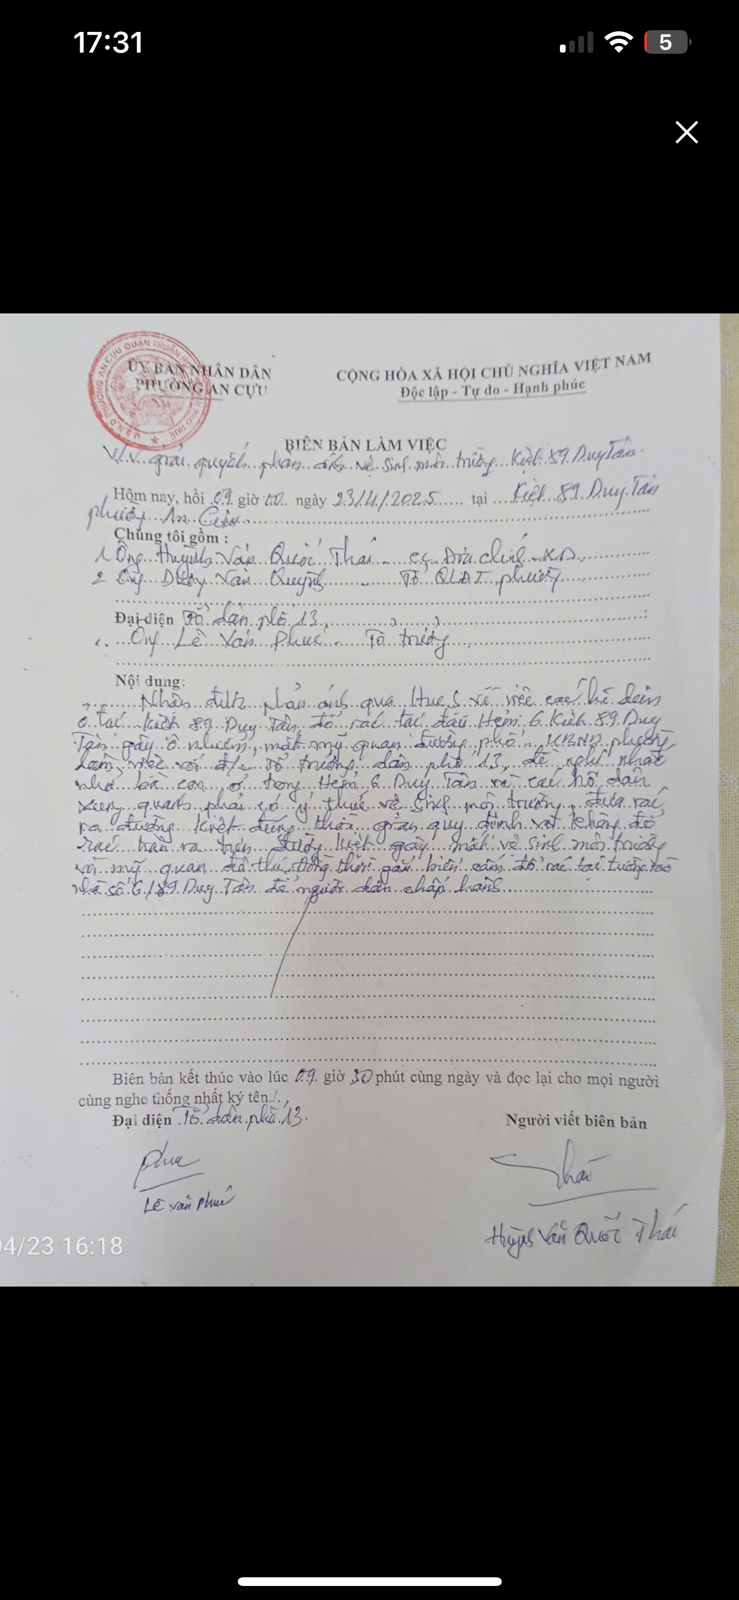 17:31
5
ỦY BAN NHÂN DÂN
PHƯỜNG AN CỰU
CỘNG HÒA XÃ HỘI CHỦ NGHĨA VIỆT NAM
Độc lập - Tự do - Hạnh phúc
BIÊN BẢN LÀM VIỆC
V/v giải quyết phản ánh vệ sinh môi trường Kiệt 89 Duy Tân
Hôm nay, hồi 09 giờ 00 ngày 23/4/2025 tại Kiệt 89 Duy Tân
phường An Cựu
Chúng tôi gồm :
1. Ông Huỳnh Văn Quốc Thái - Địa chính - XD
2. Ông Dương Văn Quỳnh Tổ QLĐT phường
Đại diện Tổ dân phố 13
1. Ông Lê Văn Phúc - Tổ trưởng
Nội dung:
Nhận được phản ánh qua HueS về việc các hộ dân
ở tại Kiệt 89 Duy Tân đổ rác tại đầu Hẻm 6 Kiệt 89 Duy
Tân gây ô nhiễm, mất mỹ quan đường phố. UBND phường
làm việc với đ/c Tổ trưởng dân phố 13, đề nghị nhắc
nhở bà con ở trong Hẻm 6 Duy Tân và các hộ dân
xung quanh phải có ý thức vệ sinh môi trường, đưa rác
ra đường Kiệt đúng thời gian quy định và không đổ
rác tràn ra trên đường Kiệt gây mất vệ sinh môi trường
và mỹ quan đô thị đồng thời gắn biển cấm đổ rác tại tường
nhà số 6/89 Duy Tân để người dân chấp hành
Biên bản kết thúc vào lúc 09 giờ 30 phút cùng ngày và đọc lại cho mọi người
cùng nghe thống nhất ký tên./.
Đại diện Tổ dân phố 13
Người viết biên bản
Phúc
Thái
Lê Văn Phúc
Huỳnh Văn Quốc Thái
04/23 16:18